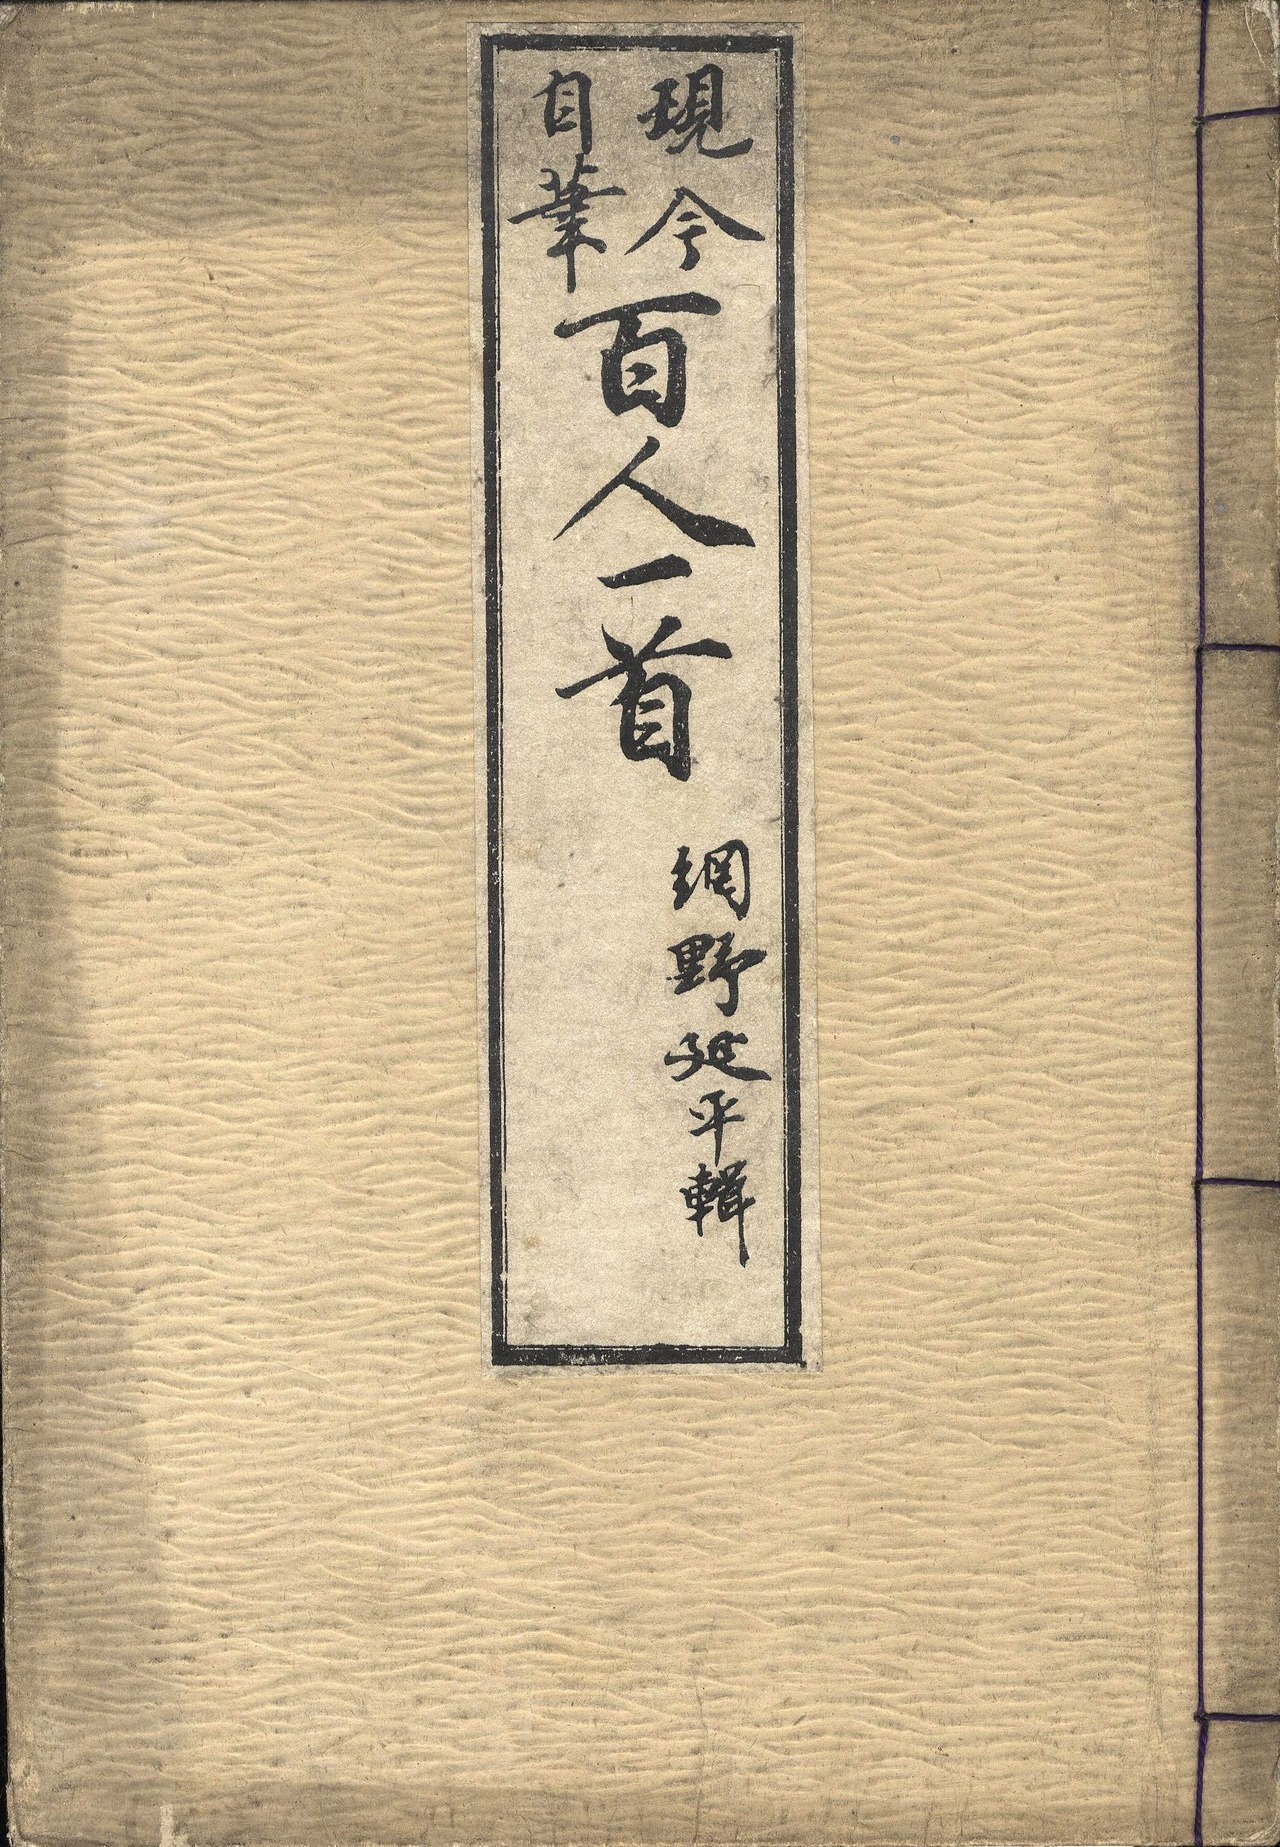 現今
自筆
百人一首
網野延平輯